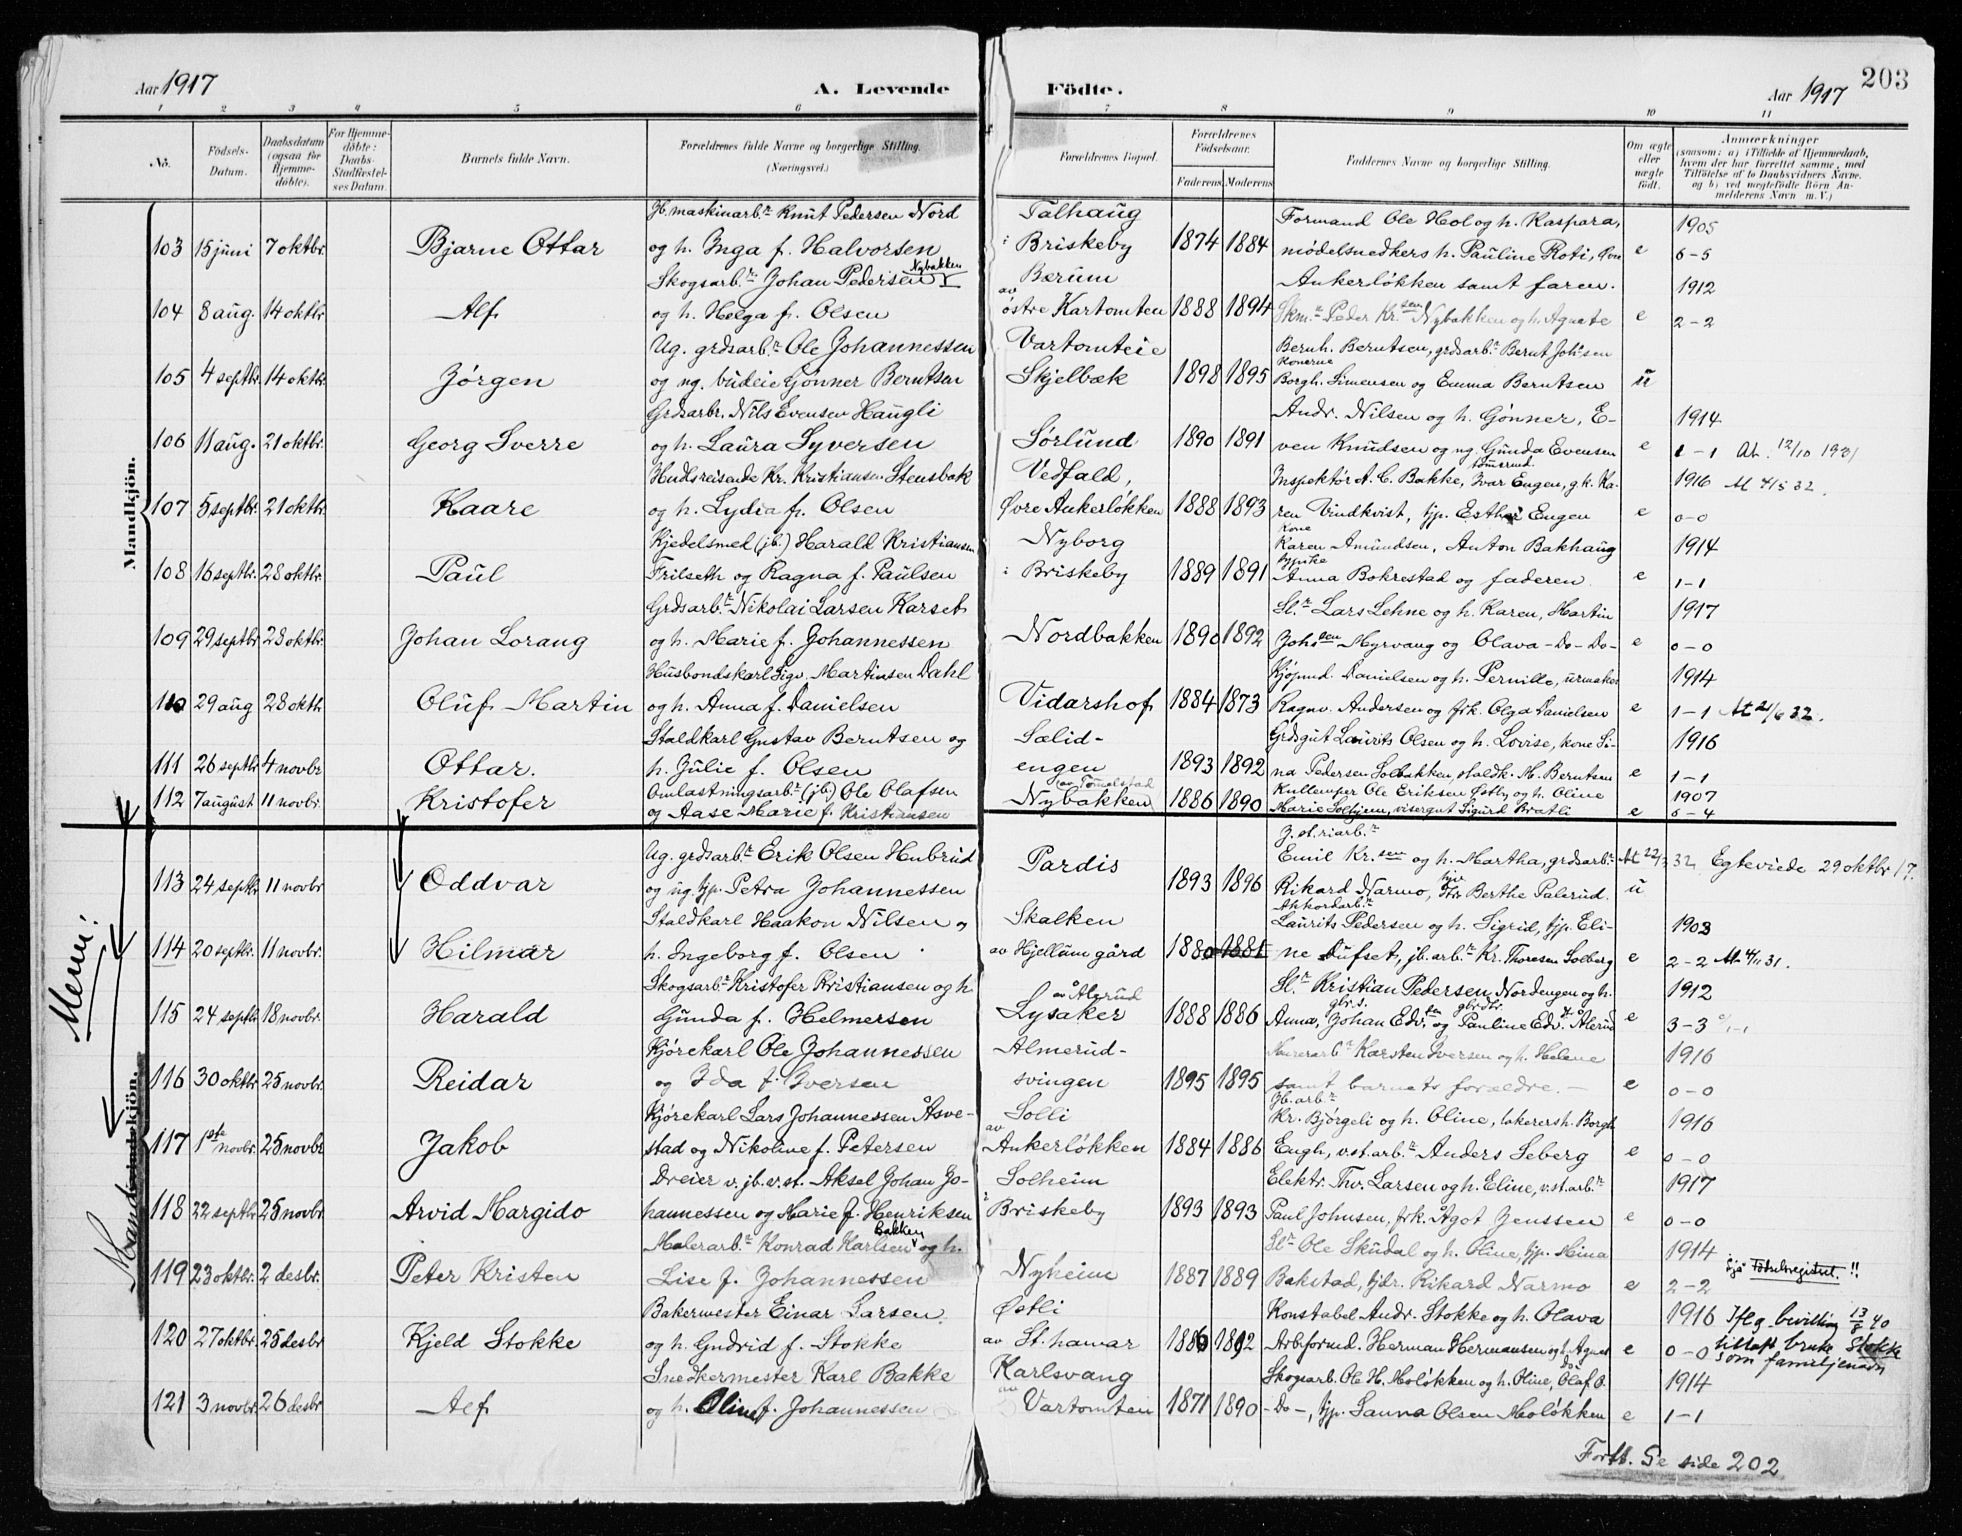 Aar 1917 A. Levende Födte. Aar 1917 203
1 2 3 4 5 6 7 8 9 10 11
No. Födsels-Datum. Daabsdatum (ogsaa for Hjemme-døbte). For Hjemme-døbte: Daabs-Stadfæstel-ses Datum. Barnets fulde Navn. Forældrenes fulde Navne og borgerlige Stilling. (Næringsvei.) Forældrenes Bopæl. Forældrenes Fødselsaar. Faderens Moderens Faddernes Navne og borgerlige Stilling. Om ægte eller uægte født. Anmærkninger (saasom: a) i Tilfælde af Hjemmedaab, hvem der har forrettet samme, med Tilføielse af to Daabsvidners Navne. og b) ved uægtefödte Börn An-melderens Navn m. V.)
Mandkjön.
Jb. maskinarb.r Knut Pedersen Nord Tolhaug Formand Ole Hol og h. Kaspara, 1905
103 15 juni 7 oktbr. Bjarne Ottar og h. Inga f. Halvorsen i Briskeby 1874 1884 modelsnedkers h. Pauline Roti, Øvre e 6-5
Skogsarb.r Johan Pedersen Nybakken Berum Ankerløkken samt faren. 1912
104 8 aug. 14 oktbr Alf og h. Helga f. Olsen av østre Kartomten 1888 1894 Skm.r Peder Kr.sen Nybakken og h. Agnete e 2-2
Ug. grdsarb.r Ole Johannessen Vartomteie Bernh. Berntsen, grdsarb.r Bernt Johsen
105 4 septbr 14 oktbr Jörgen og ug. budeie Gönner Berntsen Skjelbæk 1898 1895 konerne Borgh. Simensen og Emma Berntsen u
Grdsarbr. Nils Evensen Haugli Andr. Nilsen og h. Gönner, E- 1914
106 11 aug. 21 oktbr. Georg Sverre og h. Laura Syversen Sørlund 1890 1891 ven Knudsen og ug. Gunda Evensen e 1-1 At. 12/10 1931
Hndlsreisende Kr. Kristiansen Stensbak Vedfald, Inspektør A. C. Bakke, Ivar Engen, gk. Ka- 1916 At 4/5 32.
107 5 septbr. 21 oktbr. Kaare og h. Lydia f. Olsen Øvre Ankerløkken 1888 1893 ren Vindkvist, tjp. Esther Engen e 0-0
Kjedelsmed (jb.) Harald Kristiansen Nyborg kone Karen Amundsen, Anton Bakhaug 1914
108 16 septbr. 28 oktbr. Paul Frilseth og Ragna f. Paulsen i Briskeby 1889 1891 Anna Bokrestad og faderen e 1-1
Grdsarb.r Nikolai Larsen Karset Sl.r Lars Lehne og h. Karen, Martin 1917
109 29 septbr 28 oktbr. Johan Lorang og h. Marie f. Johannessen Nordbakken 1890 1892 Johsen Myrvang og Olava -Do-Do- e 0-0
Husbondskarl Sigv. Martinsen Dahl Kjøpmd. Danielsen og h. Pernille, urmaker 1914
110 29 aug 28 oktb. Oluf Martin og h. Anna f. Danielsen Vidarshof 1884 1873 Ragnv. Andersen og frk. Olga Danielsen e 1-1 At 21/6 32.
Staldkarl Gustav Berntsen og Sælid- Grdsgut Laurits Olsen og h. Lovise, kone Si- 1916
111 26 septbr 4 novbr Ottar. h. Julie f. Olsen engen 1893 1892 na Pedersen Solbakken, staldk. M. Berntsen e 1-1
112 7 august 11 novbr. Kristofer Omlastningsarb.r (jb.) Ole Olafsen av Tomelstad Nybakken 1886 1890 Ole Eriksen Østby og h. Oline 1907
og Aase Marie f. Kristiansen Marie Solhjem, visergut Sigurd Bratli e 6-4
J. st. riarb.r
Ug. grdsarb.r Erik Olsen Hubrud Pardis Emil Kr.sen og h. Martha, grdsarb.r At 22/3 32 Egteviede 29 oktbr 17.
113 24 septbr 11 novbr Oddvar og ug. tjp. Petra Johannessen 1893 1896 Rikard Narmo, tjp. Berthe Palerud. u
Staldkarl Haakon Nilsen og Skalken Akkordarb.r Laurits Pedersen og h. Sigrid, tjp. Eli- 1903
114 20 septbr. 11 novbr. Hilmar h. Ingeborg f. Olsen av Hjellum gård 1880 1881 ne Dufset, jb. arb.r Kr. Thoresen Solberg e 2-2 At 4/11 31.
Menn:
Skogsarb.r Kristofer Kristiansen og h. av Ålerud Sl.r Kristian Pedersen Nordengen og h. 1912
115 24 septbr 18 novbr. Harald Gunda f. Helmersen Lysaker 1888 1886 Anna, gbr.s. Johan Edv.sen og gbrdtr. Pauline Edv. Ålerud e 3-3
Kjörekarl Ole Johannessen Almerud- Murerarb.r Karsten Iversen og h. Helene 1916
116 30 oktbr 25 novbr. Reidar og Ida f. Iversen svingen 1895 1895 samt barnets forældre — e 0-0
Mandkjön. Kvindekjön.
Kjörekarl Lars Johannessen Åsve- Solli Jb. arb.r Kr. Bjørgeli og h. Oline, bakersh. Borgh. 1916
117 1ste novbr. 25 novbr Jakob stad og Nikoline f. Petersen av Ankerløkken 1884 1886 Engh, v.st.arb.r Anders Seberg e 0-0
Dreier v. jb.v.st. Aksel Johan Jo- Solheim Elektr. Thv. Larsen og h. Eline, v.st.arb.r 1917
118 22 septbr 25 novbr. Arvid Margido hannessen og Marie f. Henriksen i Briskeby 1893 1893 Paul Johnsen, frk. Ågot Jenssen e 0-0
Malerarb.r Konrad Karlsen Bakken og h. Sl.r Ole Skudal og h. Oline, tjp. Mina 1914
119 23 oktbr. 2 desbr. Peter Kristen Lise f. Johannessen Nyheim 1887 1889 Bakstad, tjdr. Rikard Narmo e 2-2 Sjå Fødselsregistret. !!
Bakermester Einar Larsen Østli Konstabel Andr. Stokke og h. Olava 1916 Iflg bevilling 13/8 40
120 27 oktbr. 25 desbr Kjeld Stokke og h. Gudrid f. Stokke av St. hamar 1886 1892 Arbformd. Herman Hermansen og h. Agnes e 0-0 tillatt bruke Stokke som familjenavn
Snedkermester Karl Bakke Karlsvang Skogsarb. Ole H. Moløkken og h. Oline, Olaf O. 1914
121 3 novbr. 26 desbr Alf og h. Oline f. Johannessen av Vartomten 1871 1890 -Do-, tjp. Sanna Olsen Moløkken e 1-1
Forts. Se side 202